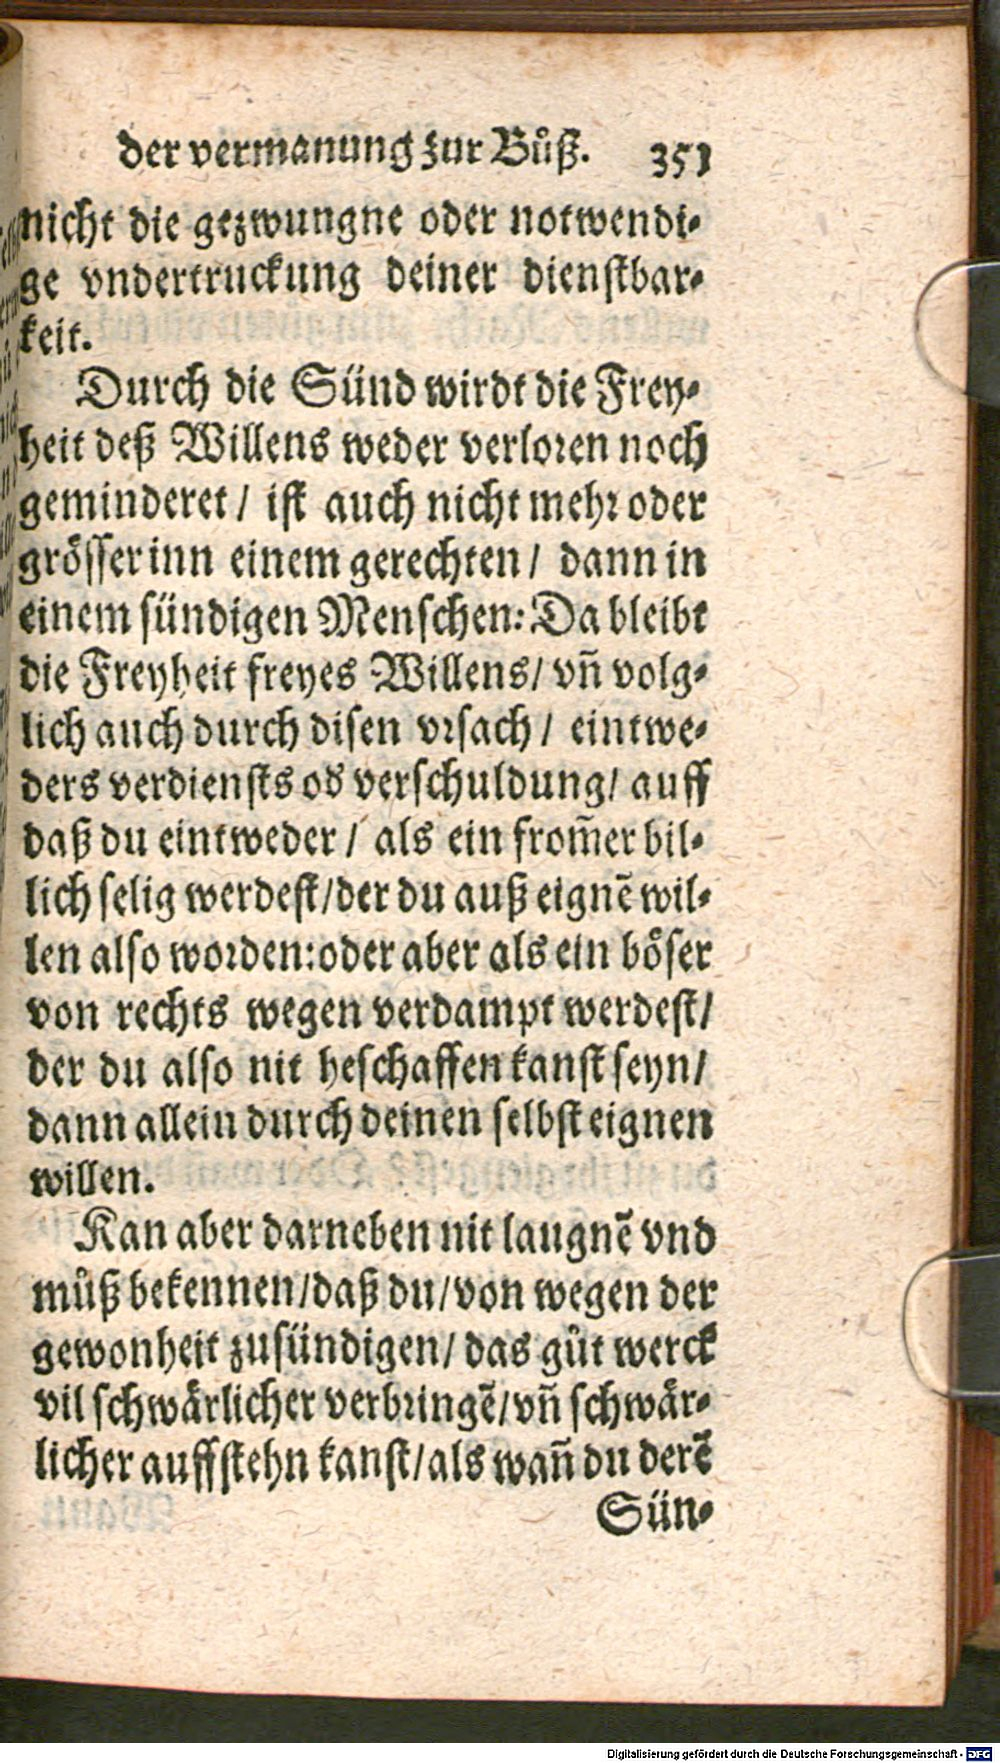 der vermanung zur Bůß. 351
nicht die gezwungne oder notwendi⸗
ge vndertruckung deiner dienstbar⸗
keit.
Durch die Sünd wirdt die Frey⸗
heit deß Willens weder verloren noch
geminderet / ist auch nicht mehr oder
grösser inn einem gerechten / dann in
einem sündigen Menschen: Da bleibt
die Freyheit freyes Willens / vñ volg⸗
lich auch durch disen vrsach / eintwe⸗
ders verdiensts od verschuldung / auff
daß du eintweder / als ein from̃er bil⸗
lich selig werdest / der du auß eignẽ wil⸗
len also worden: oder aber als ein böser
von rechts wegen verdampt werdest /
der du also nit heschaffen kanst seyn /
dann allein durch deinen selbst eignen
willen.
Kan aber darneben nit laugnẽ vnd
můß bekennen / daß du / von wegen der
gewonheit zusündigen / das gůt werck
vil schwärlicher verbringẽ / vñ schwär⸗
licher auffstehn kanst / als wañ du derẽ
Sün⸗
Digitalisierung gefördert durch die Deutsche Forschungsgemeinschaft - DFG